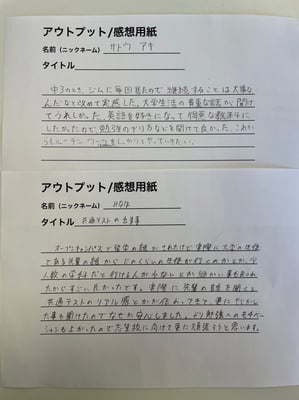 アウトプット/感想用紙
名前（ニックネーム） サトウ アキ
タイトル
中3のとき、ジムに毎回居たので継続することは大事な
んだなと改めて実感した。大学生活の貴重な話が聞け
てうれしかった。英語を好きになって得意な教科に
したかったので、勉強のやり方などを聞けて良かった。これか
らもルーチンワークをしっかりとやっていきたい。
アウトプット/感想用紙
名前（ニックネーム）
タイトル 共通テストの
オープンキャンパスで留学の話がされたけど実際に大学の生徒
である先輩の話から どのくらいの生徒が行くのかとか、少
人数の学科だと行ける人が少なしとか細かい事も知れ
たからすごい良かったです。実際に先輩の話を聞くと
共通テストのリアル感とかが伝わってきて、更に
大事も聞けたのでなぜか安心しました。より勉強へのモチベー
ションも上がったので志望校に向けて更に頑張ろうと思います。